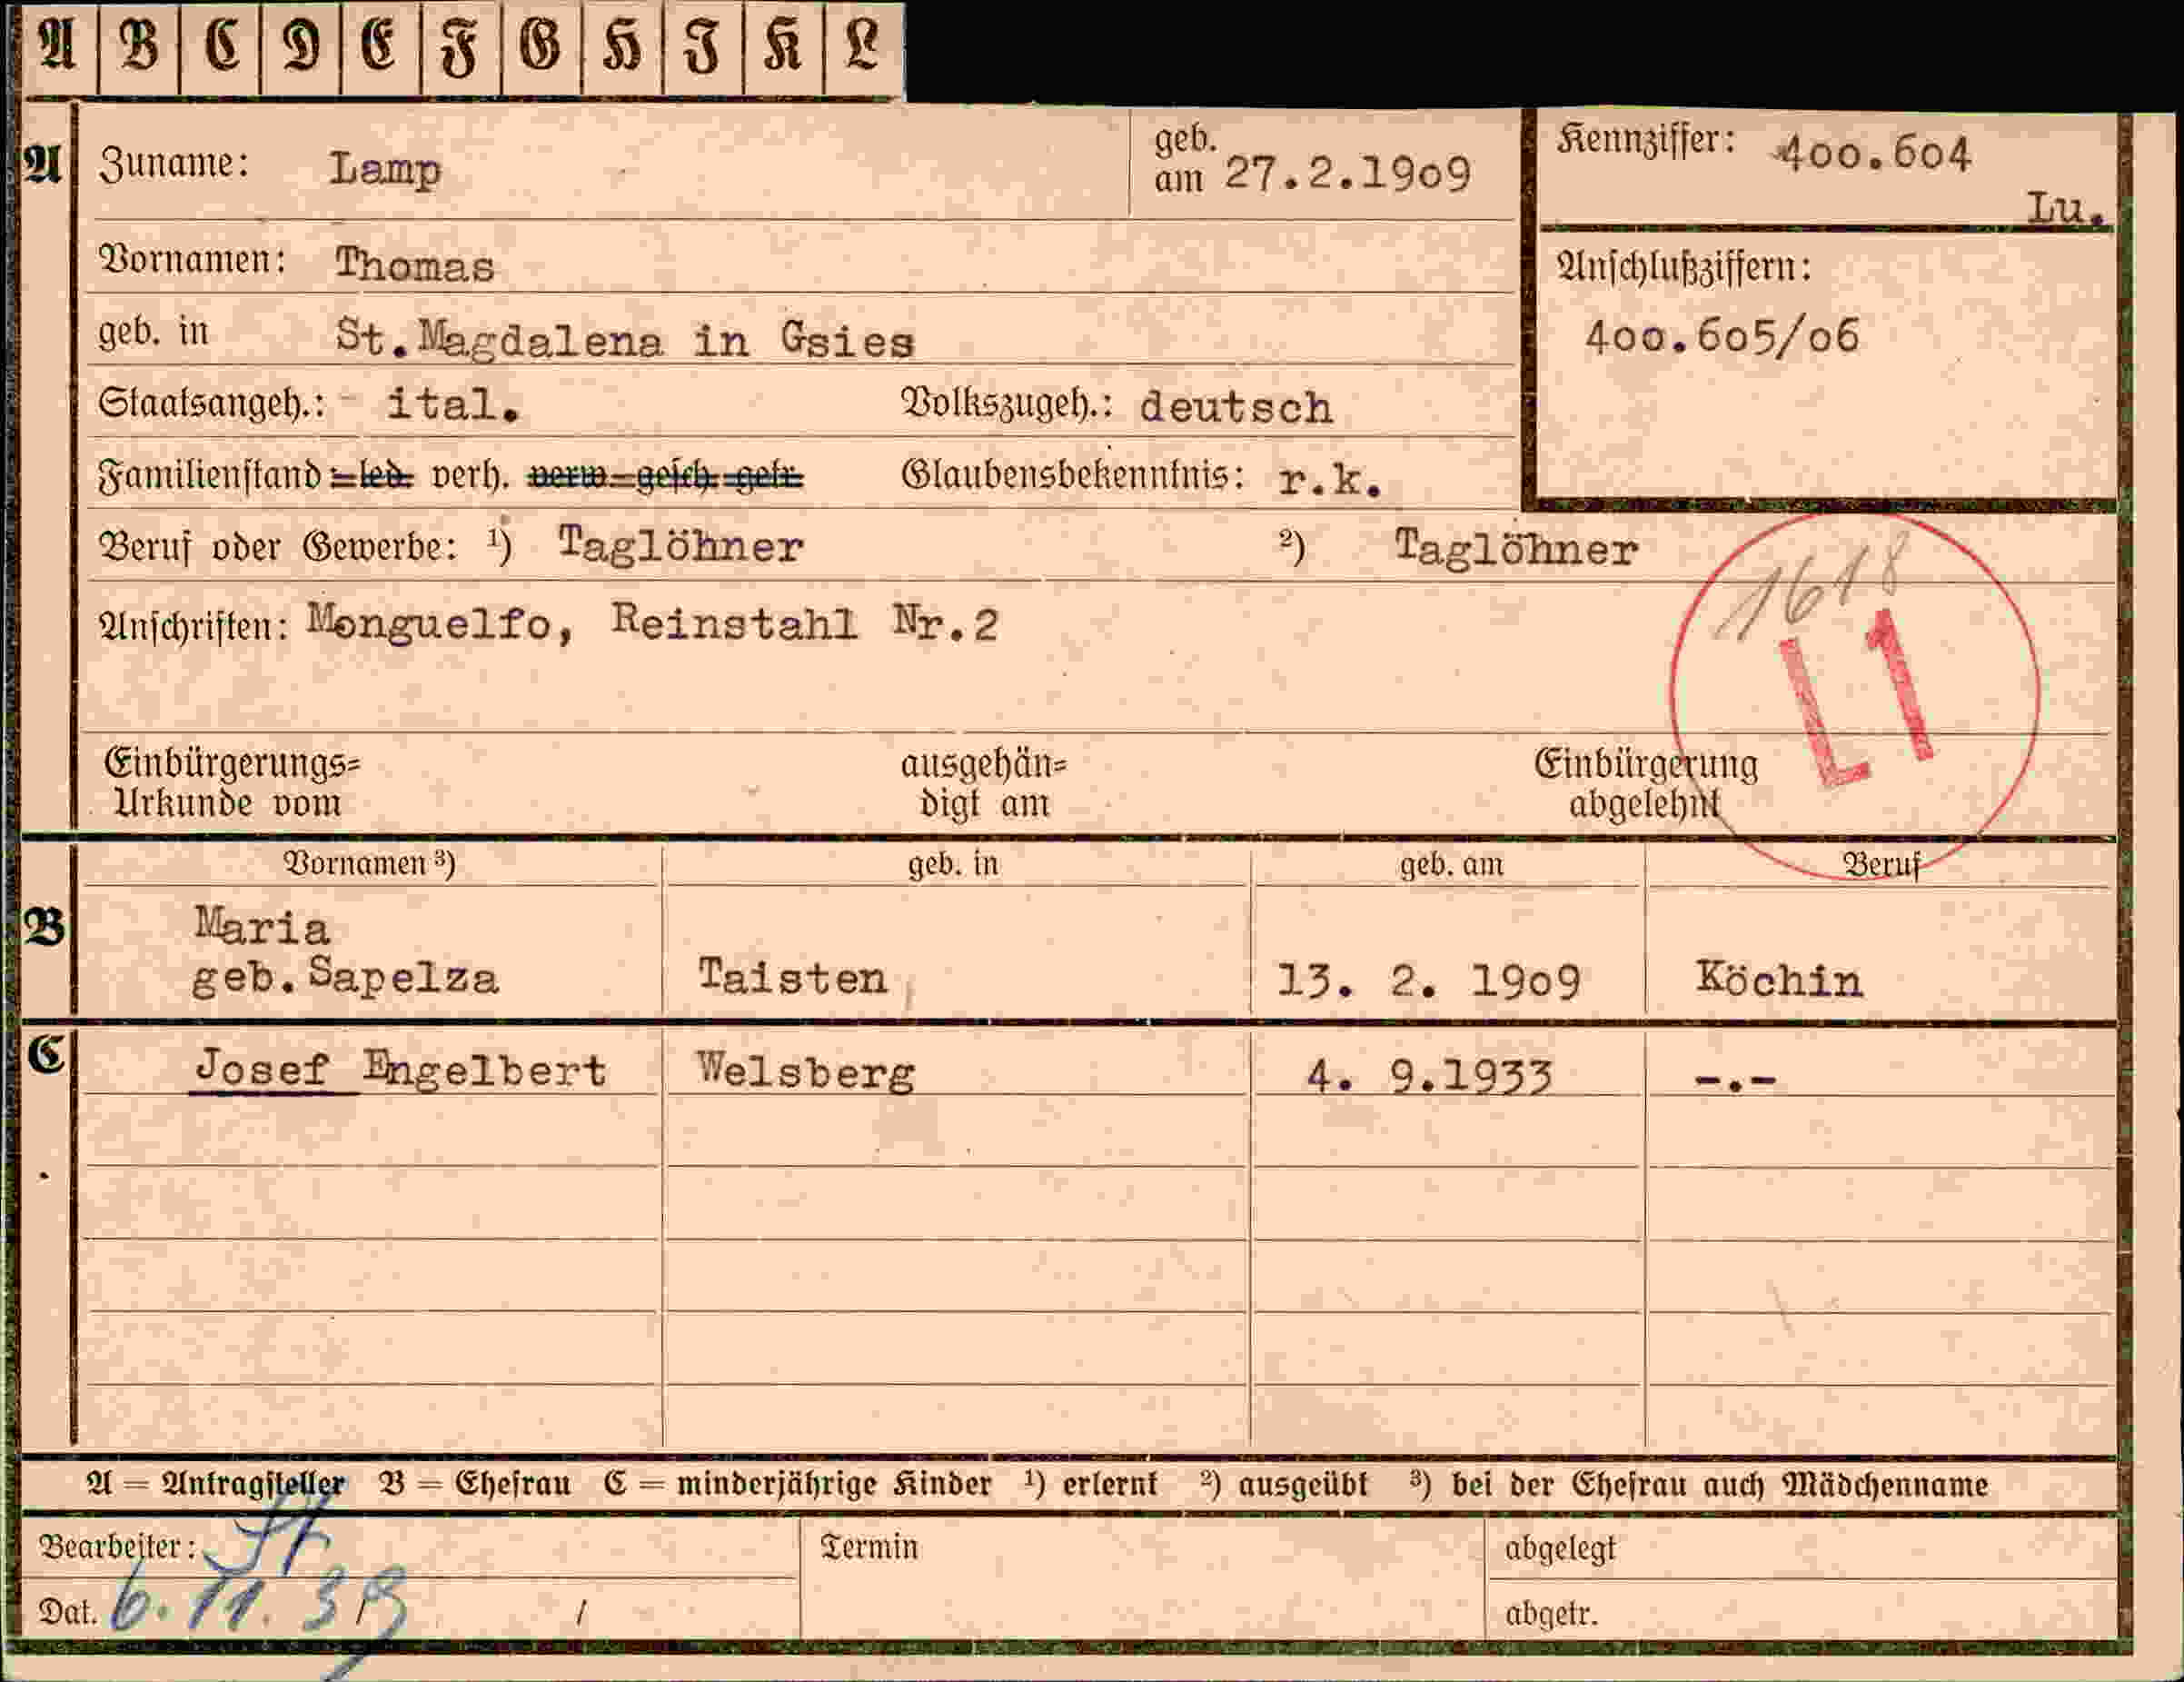 A B C D E F G H J K L
A Zuname: Lamp geb. am 27.2.1909 Kennziffer: 400.604
Lu.
Vornamen: Thomas Anschlußziffern:
geb. in St.Magdalena in Gsies 400.605/06
Staatsangeh.: ital. Volkszugeh.: deutsch
Familienstand: led. verh. verw. gesch. getr. Glaubensbekenntnis: r.k.
Beruf oder Gewerbe: ¹) Taglöhner ²) Taglöhner
1618
Anschriften: Monguelfo, Reinstahl Nr.2
L1
Einbürgerungs= ausgehän= Einbürgerung
Urkunde vom digt am abgelehnt
Vornamen ³) geb. in geb. am Beruf
B Maria
geb.Sapelza Taisten 13. 2. 1909 Köchin
C Josef Engelbert Welsberg 4. 9.1933 -.-
A = Antragsteller B = Ehefrau C = minderjährige Kinder ¹) erlernt ²) ausgeübt ³) bei der Ehefrau auch Mädchenname
Bearbeiter: Termin abgelegt
Dat. 6.11.39 / abgetr.